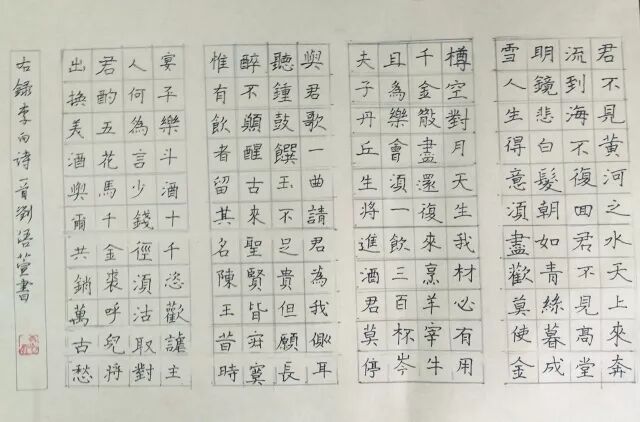 君不見黃河之水天上來奔
流到海不復回君不見高堂
明鏡悲白髮朝如青絲暮成
雪人生得意須盡歡莫使金
樽空對月天生我材必有用
千金散盡還復來烹羊宰牛
且為樂會須一飲三百杯岑
夫子丹丘生將進酒君莫停
與君歌一曲請君為我側耳
聽鐘鼓饌玉不足貴但願長
醉不願醒古來聖賢皆寂寞
惟有飲者留其名陳王昔時
宴平樂斗酒十千恣歡謔主
人何為言少錢徑須沽取對
君酌五花馬千金裘呼兒將
出換美酒與爾共銷萬古愁
右錄李白诗一首劉语萱書